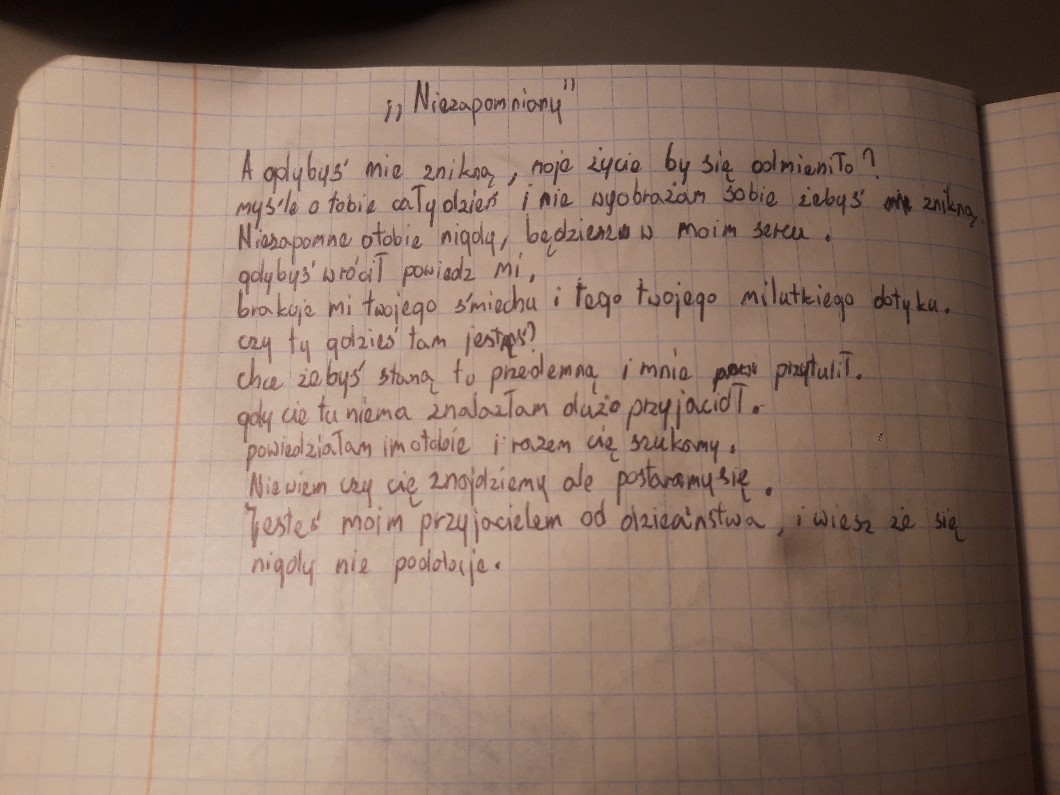 „Niezapomniany"
A gdybyś mie zniknął, moje życie by się odmieniło?
myśle o tobie cały dzień i nie wyobrażam sobie żebyś zniknął.
Niezapomne otobie nigdy, będziesz w moim sercu.
gdybyś wrócił powiedz mi,
brakuje mi twojego śmiechu i tego twojego milutkiego dotyku.
czy ty gdzieś tam jesteś?
chce żebyś staną tu przedemną i mnie przytulił.
gdy cie tu niema znalazłam dużo przyjaciół.
powiedziałam im otobie i razem cię szukamy.
Niewiem czy cię znajdziemy ale postaramy się.
Jesteś moim przyjacielem od dzieciństwa, i wiesz że się
nigdy nie poddaje.